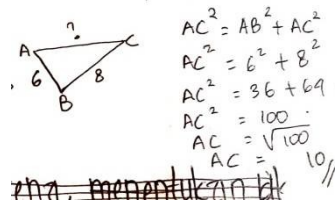 ?
A C
6 8
B
AC² = AB² + AC²
AC² = 6² + 8²
AC² = 36 + 64
AC² = 100
AC = √100
AC = 10 //
menentukan